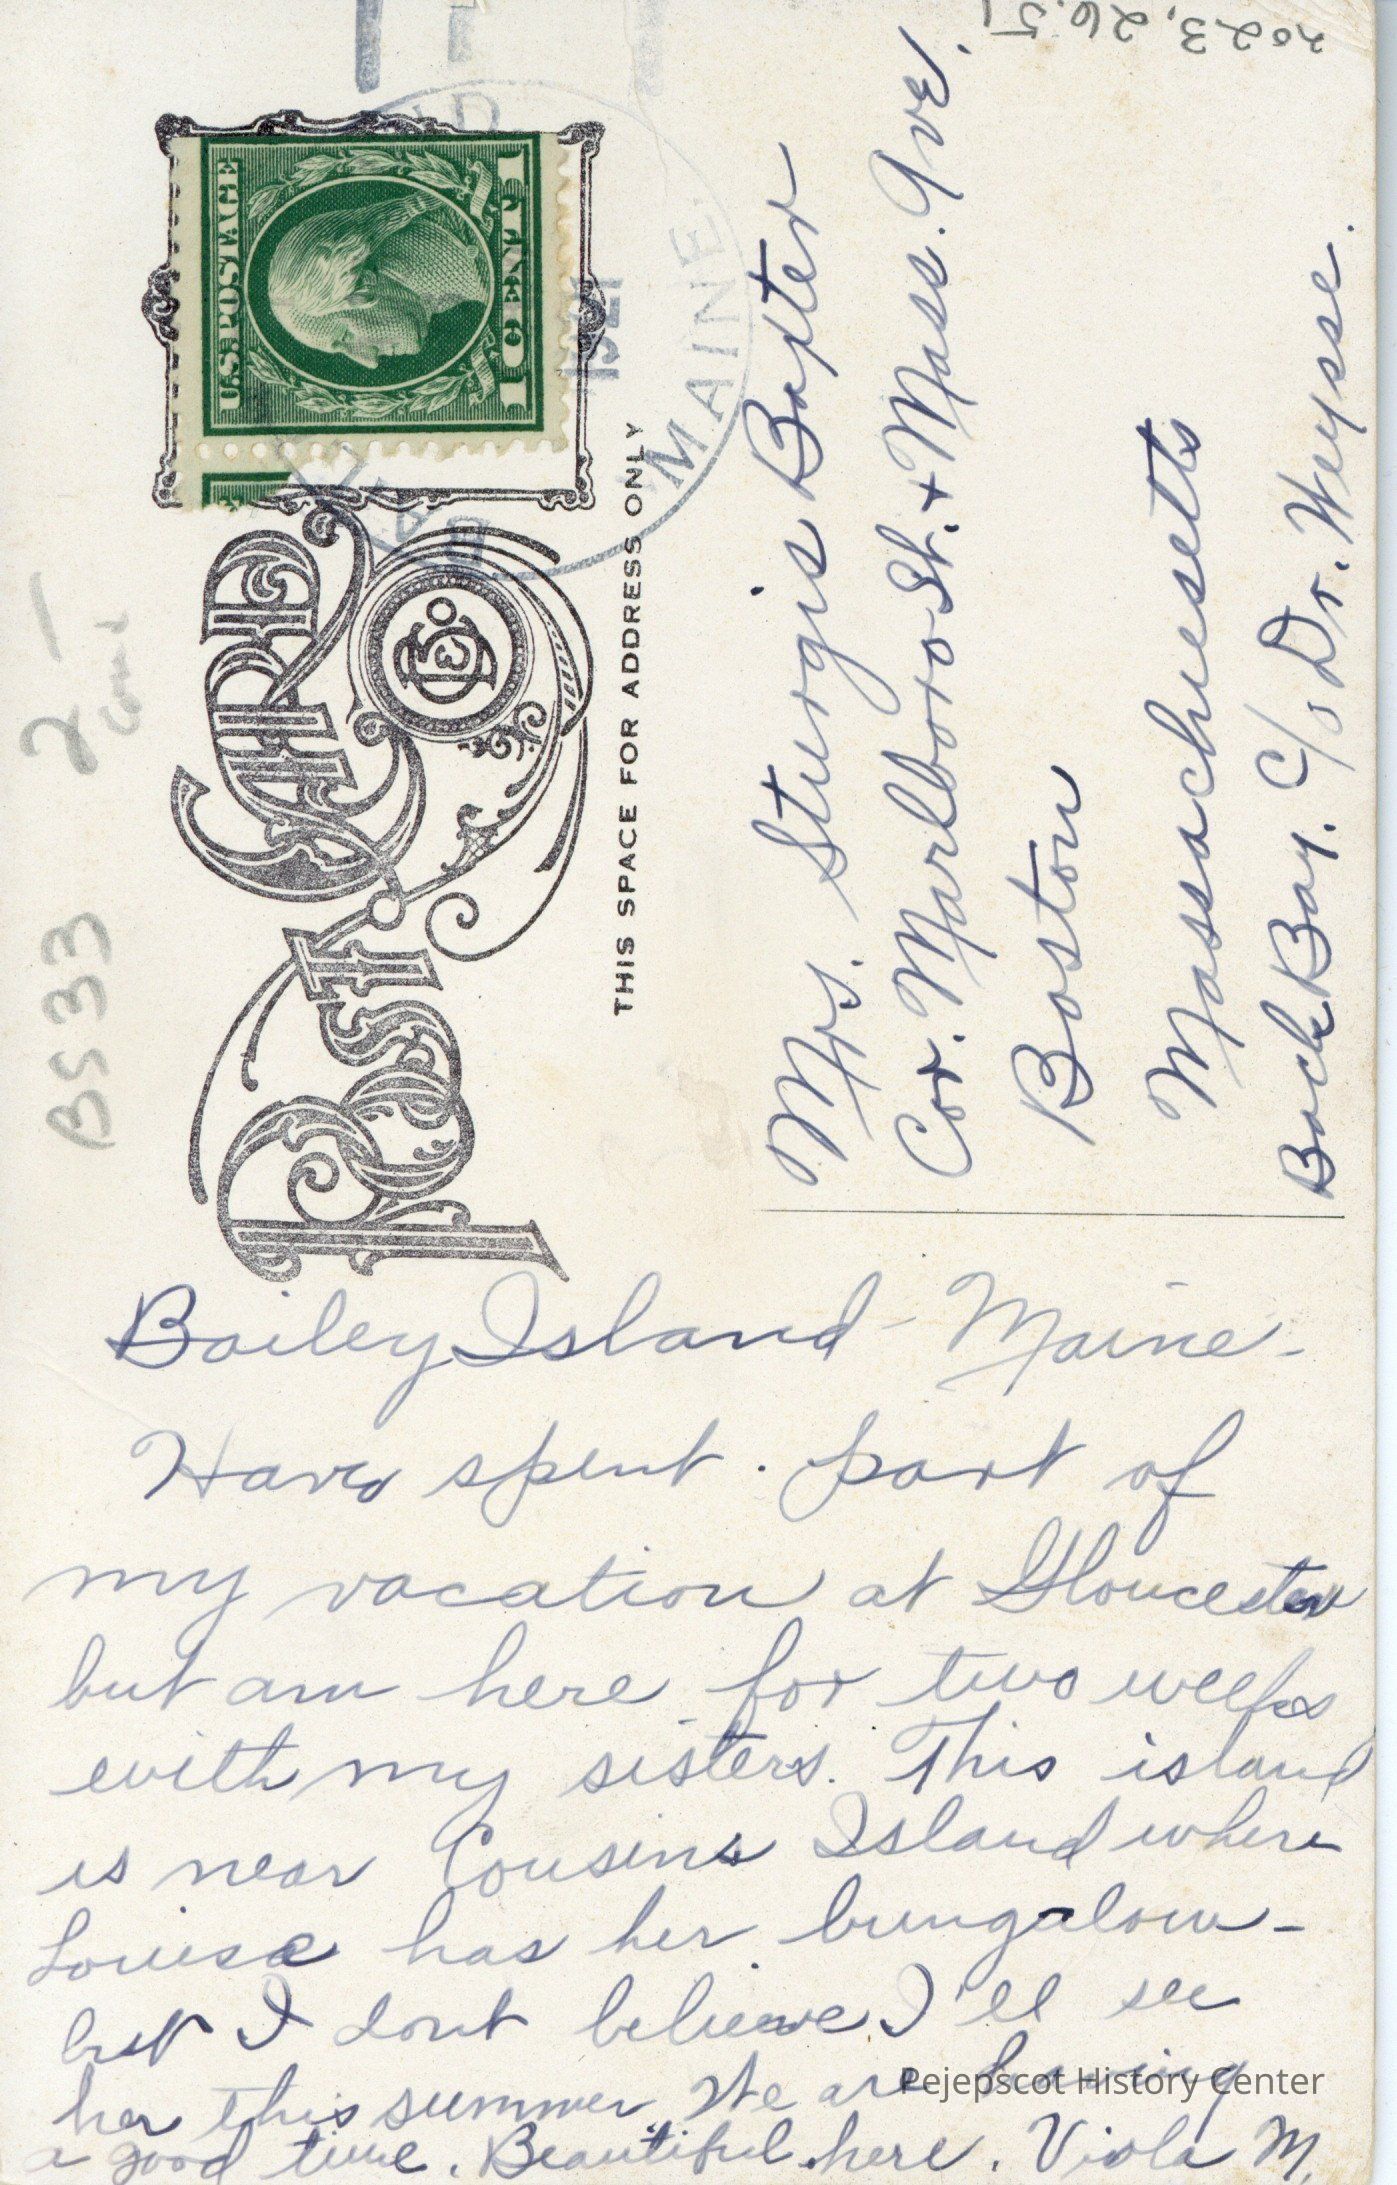 2023.26.51
BS33
2-
POST CARD
THIS SPACE FOR ADDRESS ONLY
U.S. POSTAGE
1 CENT 1
1921
MAINE.
Mrs. Sturgis Baxter
Cor. Marlboro St. + Mass. Ave.
Boston
Massachusetts
Back Bay. c/o Dr. Weysse.
Bailey Island - Maine -
Have spent part of
my vacation at Gloucester
but am here for two weeks
with my sisters. This island
is near Cousins Island where
Louise has her bungalow -
but I dont believe I'll see
her this summer. We are having
a good time. Beautiful here. Viola M.
Pejepscot History Center